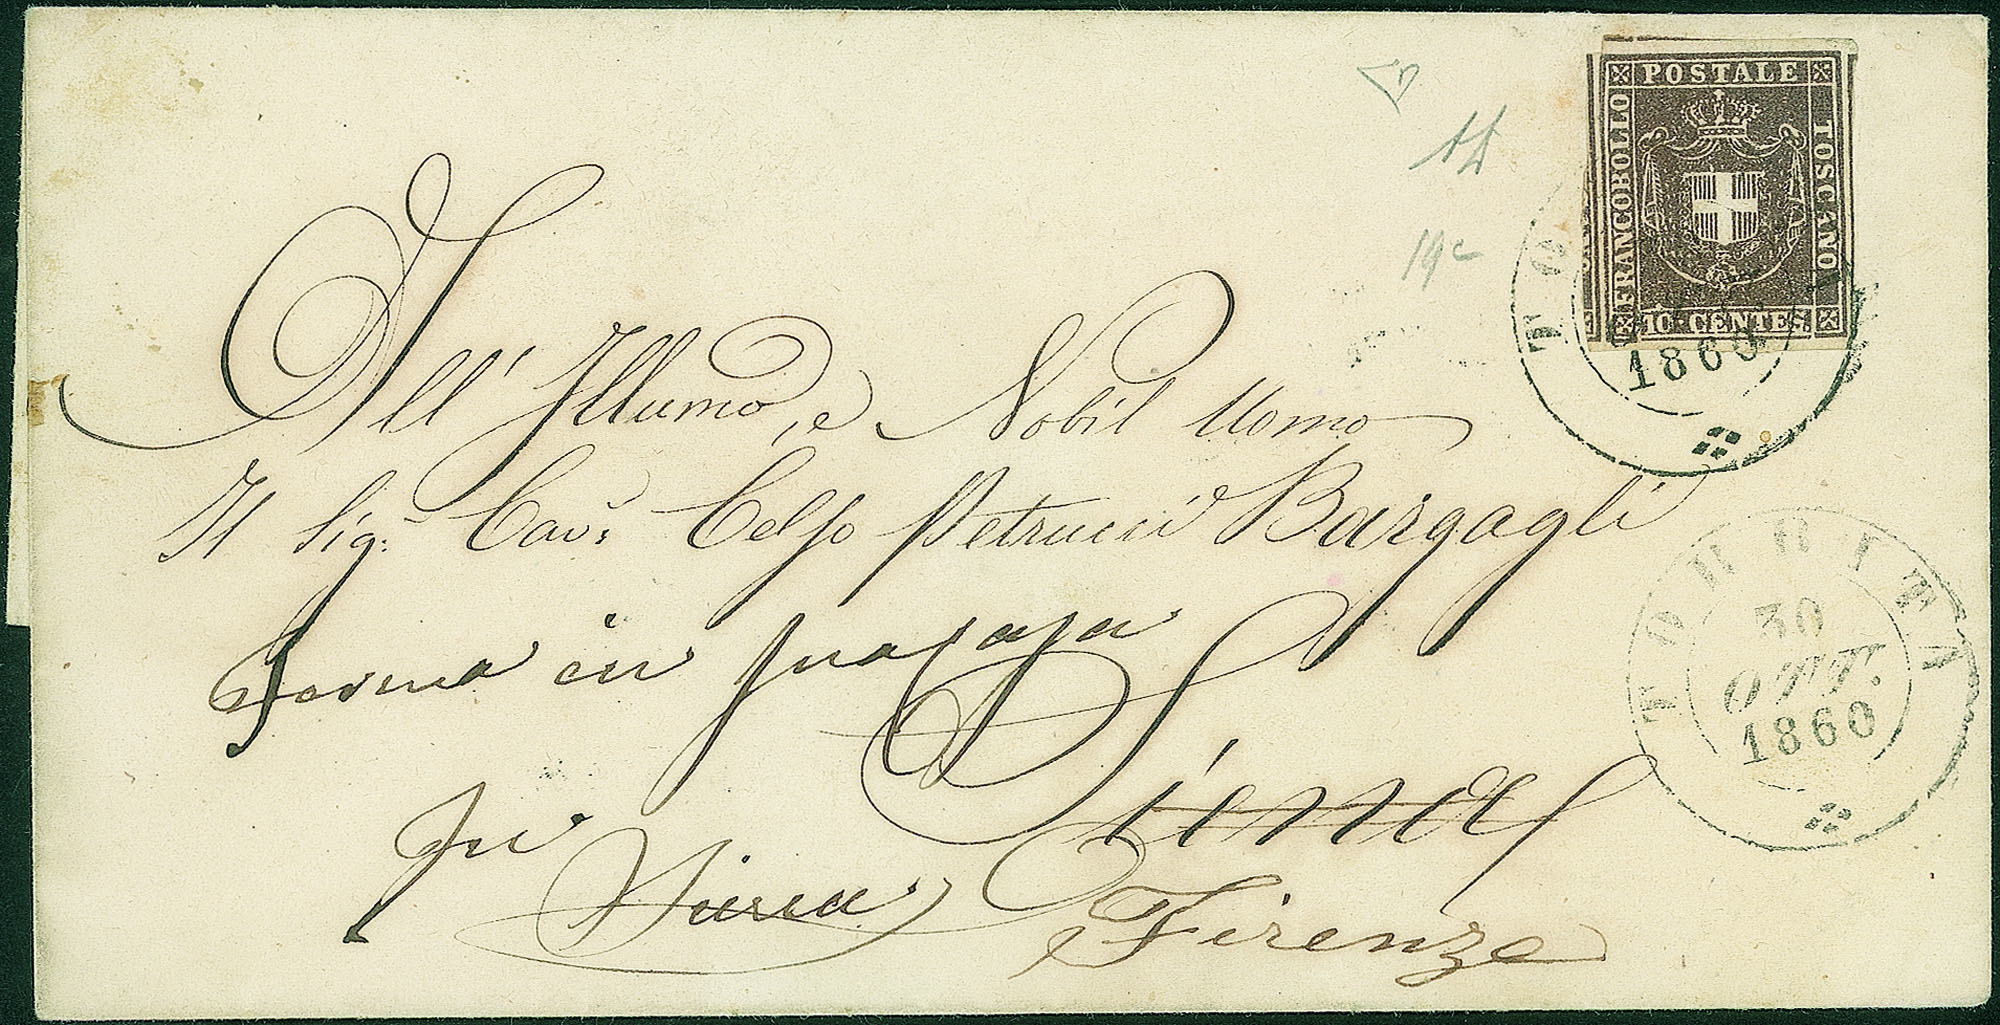 POSTALE
FRANCOBOLLO
TOSCANO
10 CENTES.
TO
1860
19c
All' Illumo, e Nobil Uomo
Il Sigr. Cavr. Celso Petrucci Bargagli
Ferma in
Siena
Firenze
TORRITA
30
OTT.
1860